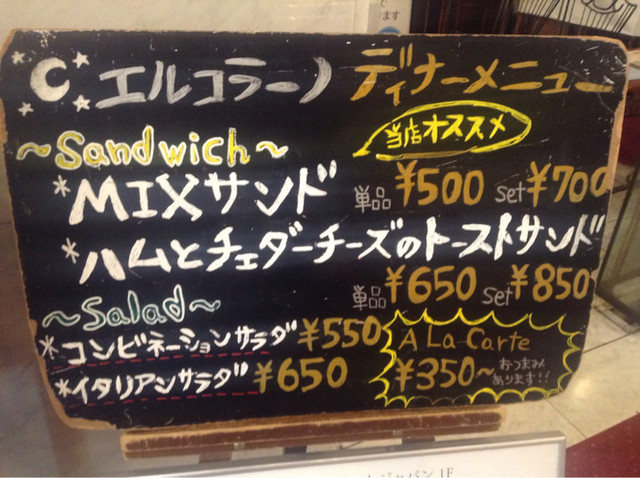 エルコラーノ ディナーメニュー
当店オススメ
～Sandwich～
*MIXサンド 単品¥500 set¥700
*ハムとチェダーチーズのトーストサンド
単品¥650 set¥850
～Salad～
*コンビネーションサラダ¥550
*イタリアンサラダ¥650
A La-Carte
¥350～おつまみ
あります!!
ジャパン1F